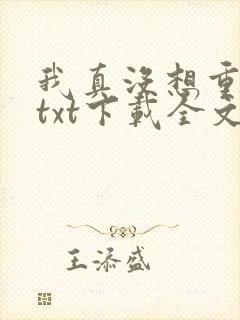 我真没想重
txt下载全文
王添盛